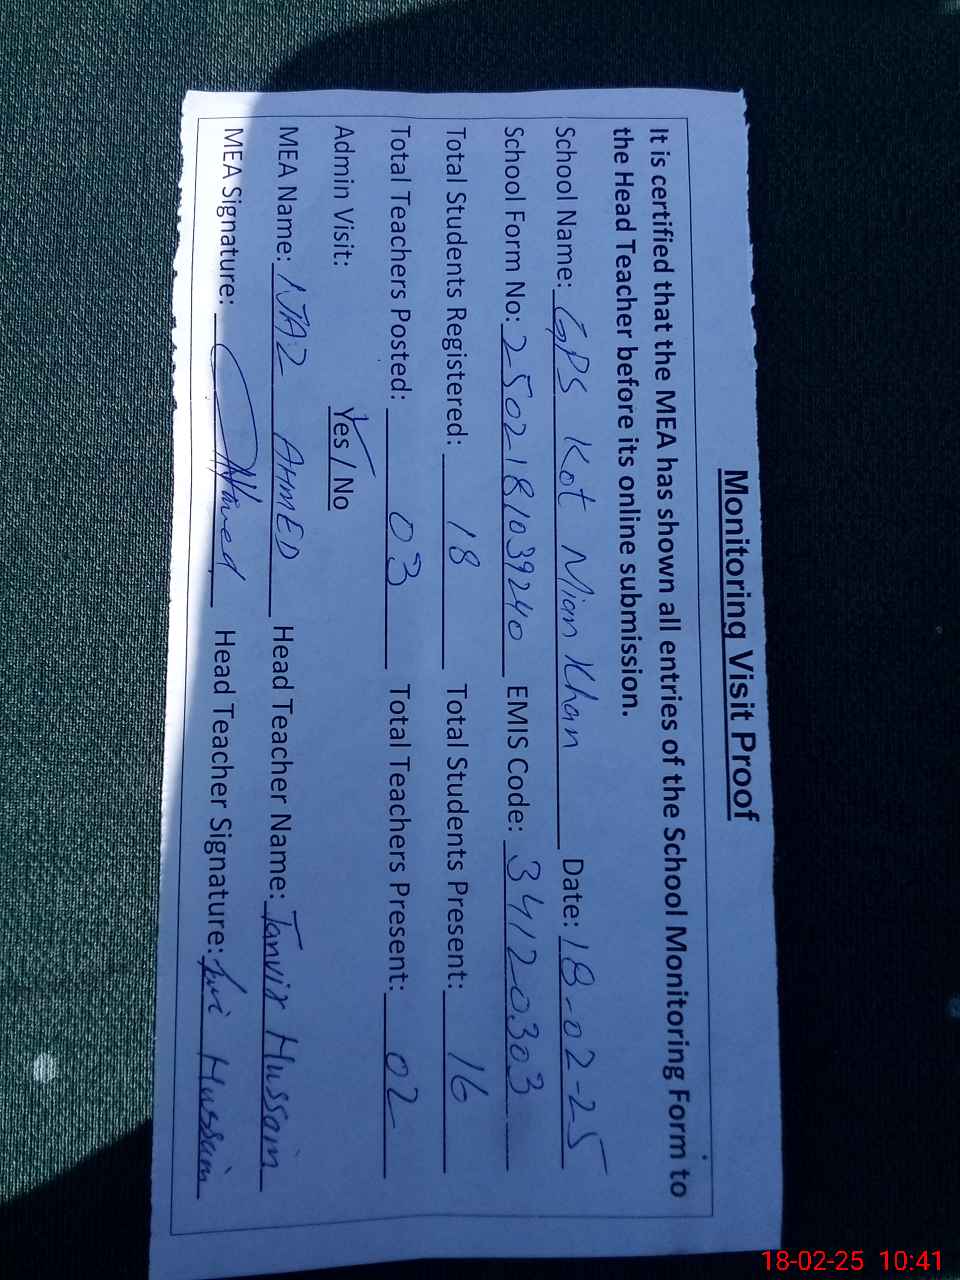 Monitoring Visit Proof
It is certified that the MEA has shown all entries of the School Monitoring Form to
the Head Teacher before its online submission.
School Name: GPS Kot Mian Khan Date: 18-02-25
School Form No: 2502181039240 EMIS Code: 34120303
Total Students Registered: 18 Total Students Present: 16
Total Teachers Posted: 03 Total Teachers Present: 02
Admin Visit: Yes / No
MEA Name: IJAZ AHMED Head Teacher Name: Tanvir Hussain
MEA Signature: Ahmed Head Teacher Signature: Hussain
18-02-25 10:41